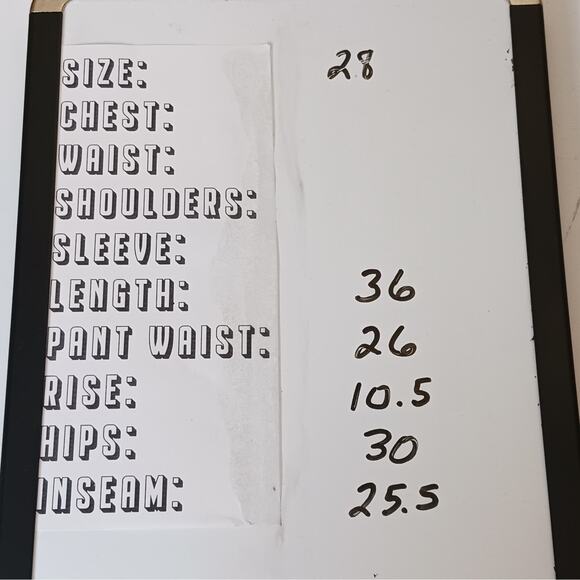 SIZE: 28
CHEST:
WAIST:
SHOULDERS:
SLEEVE:
LENGTH: 36
PANT WAIST: 26
RISE: 10.5
HIPS: 30
INSEAM: 25.5